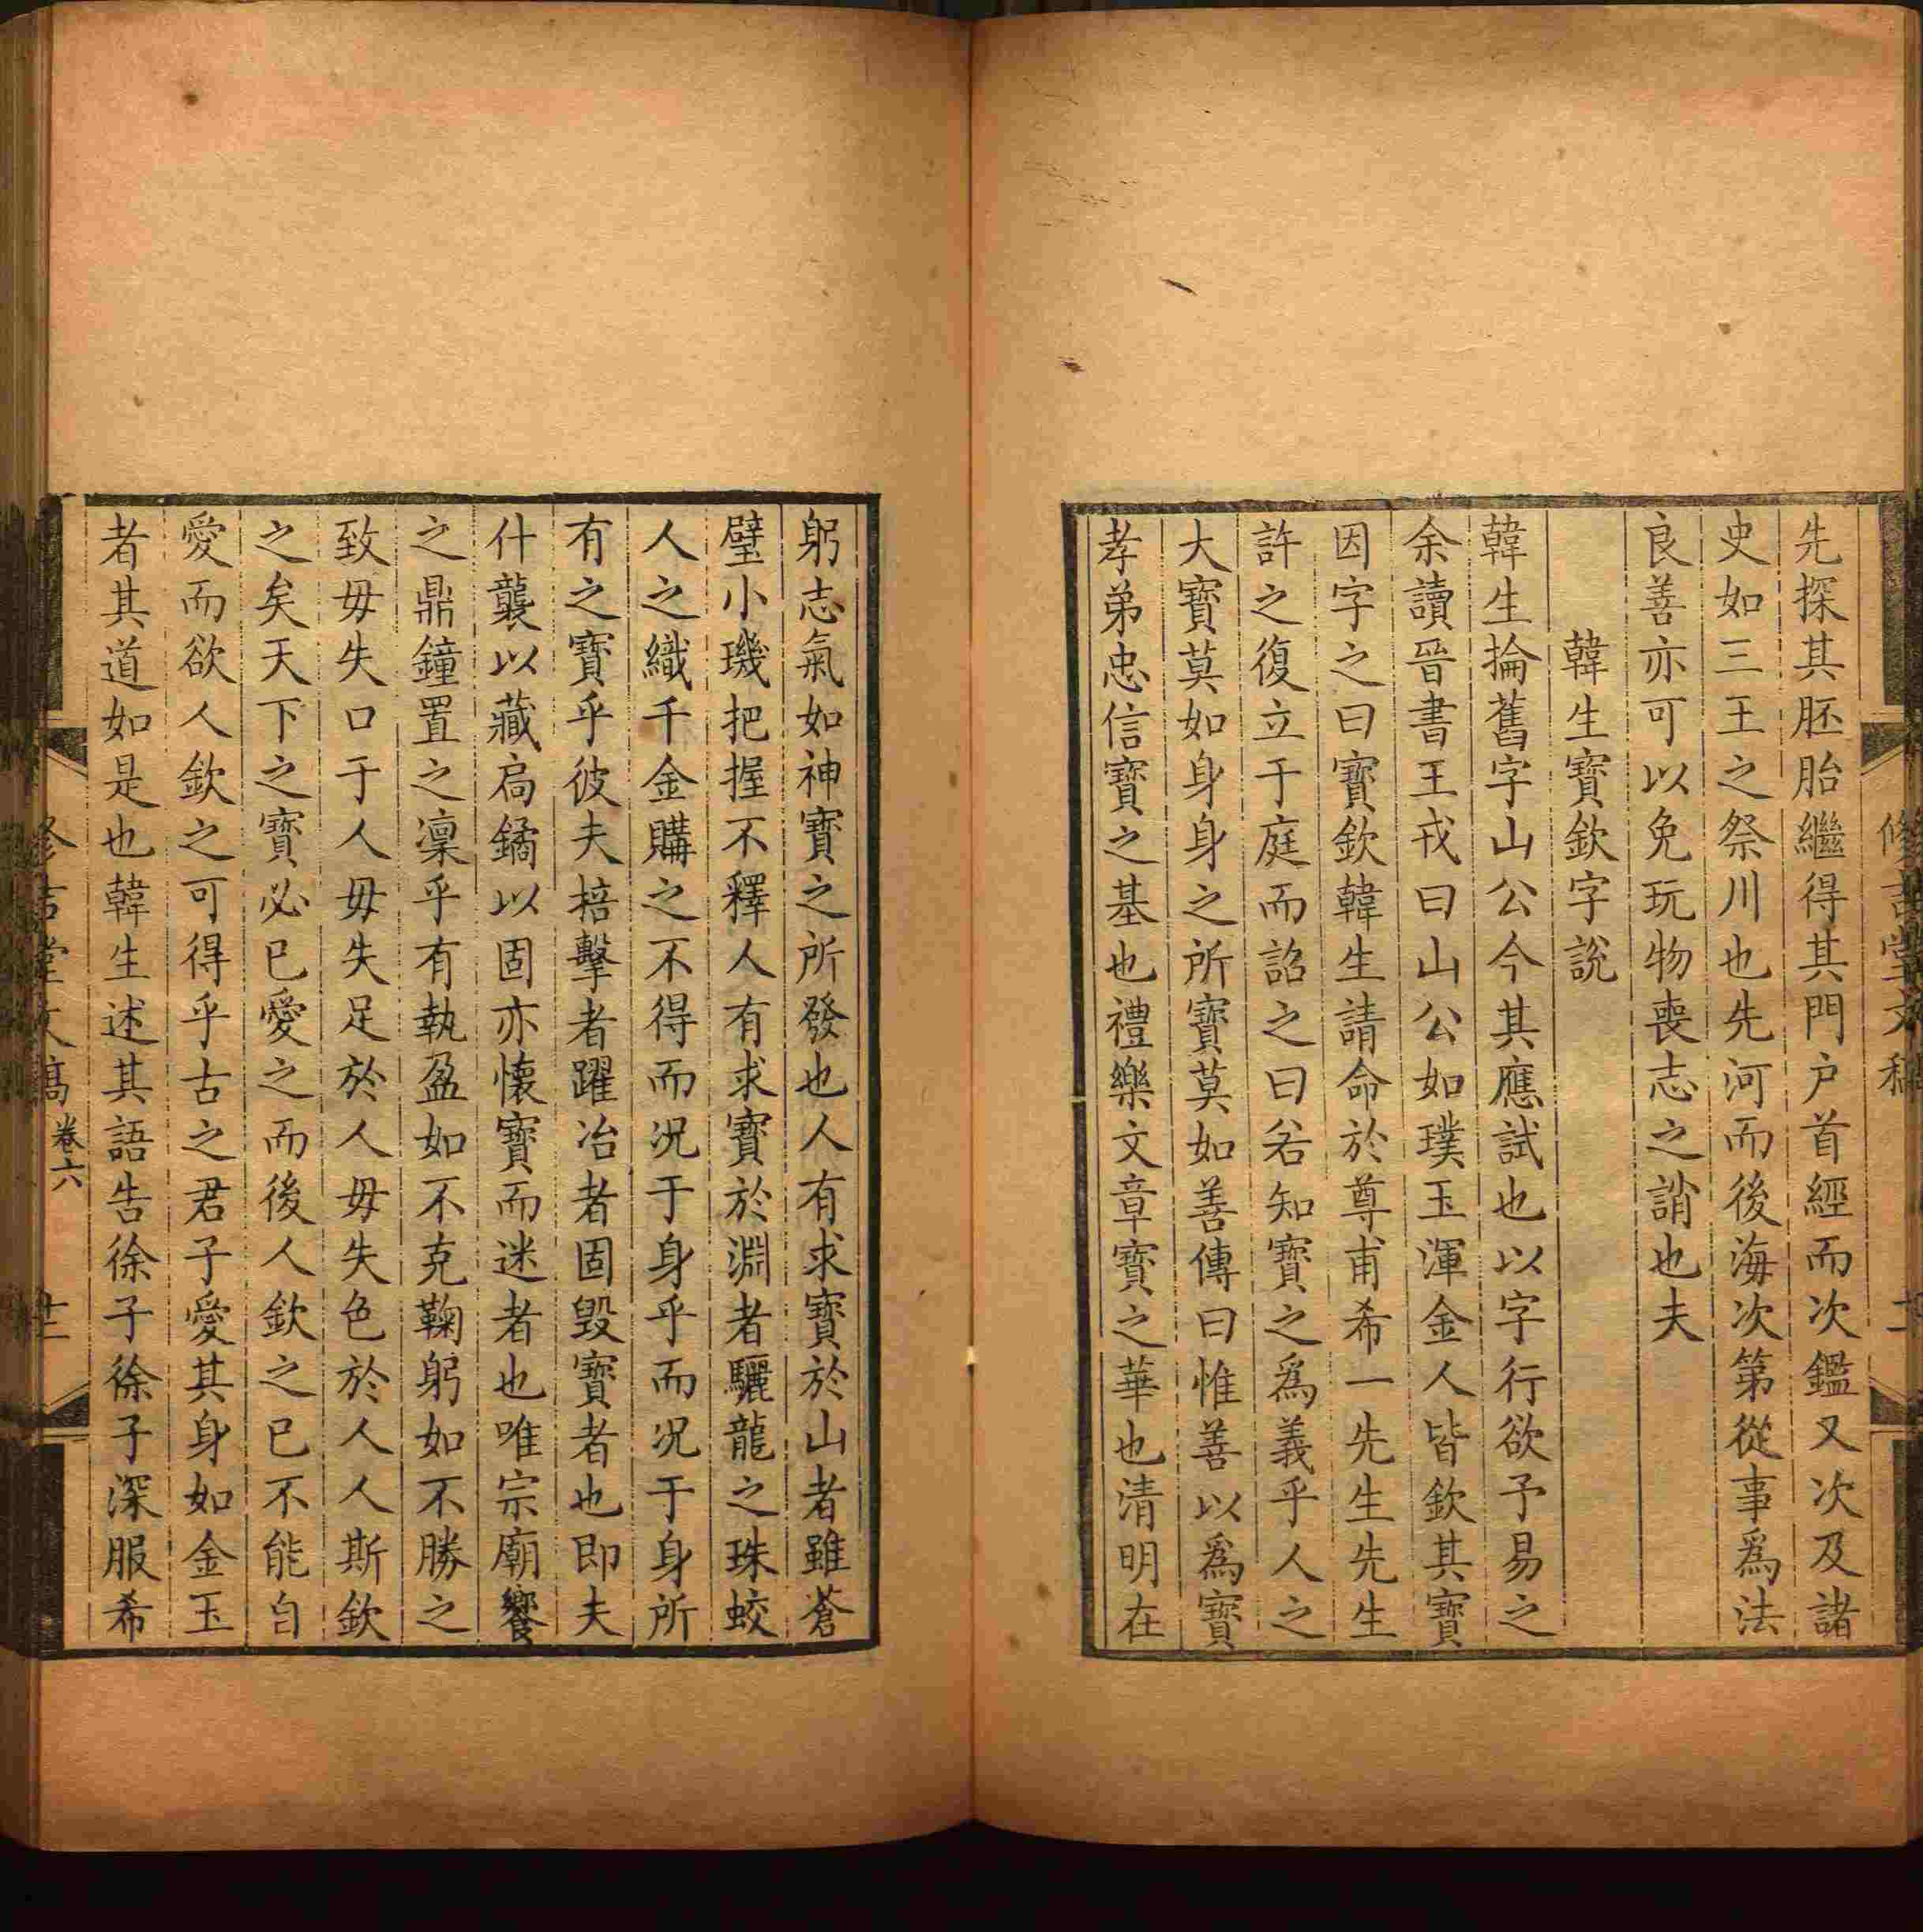 先探其胚胎繼得其門户首經而次鑑又次及諸
史如三王之祭川也先河而後海次第從事爲法
良善亦可以免玩物喪志之誚也夫
韓生寶欽字說
韓生掄舊字山公今其應試也以字行欲予易之
余讀晉書王戎曰山公如璞玉渾金人皆欽其寶
因字之曰寶欽韓生請命於尊甫希一先生先生
許之復立于庭而詔之曰若知寶之爲義乎人之
大寶莫如身身之所寶莫如善傳曰惟善以爲寶
孝弟忠信寶之基也禮樂文章寶之華也清明在
躬志氣如神寶之所發也人有求寶於山者雖蒼
璧小璣把握不釋人有求寶於淵者驪龍之珠蛟
人之織千金購之不得而況于身乎而况于身所
有之寶乎彼夫掊擊者躍冶者固毀寶者也即夫
什襲以藏扃鐍以固亦懷寶而迷者也唯宗廟饗
之鼎鐘置之凜乎有執盈如不克鞠躬如不勝之
致毋失口于人毋失足於人毋失色於人人斯欽
之矣天下之寶必已愛之而後人欽之已不能自
愛而欲人欽之可得乎古之君子愛其身如金玉
者其道如是也韓生述其語告徐子徐子深服希
卷六